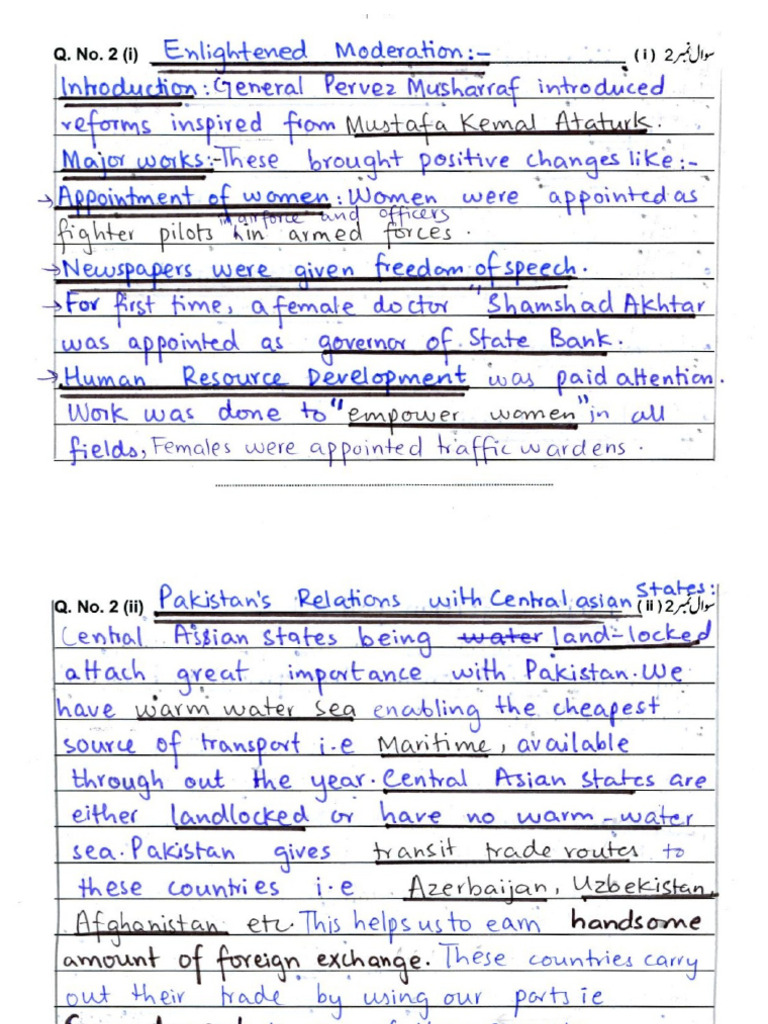 Q. No. 2 (i) Enlightened Moderation:- (i) سوال نمبر 2
Introduction: General Pervez Musharraf introduced
reforms inspired from Mustafa Kemal Ataturk.
Major works:- These brought positive changes like:-
→ Appointment of women: Women were appointed as
in airforce and officers
fighter pilots in armed forces.
→ Newspapers were given freedom of speech.
→ For first time, a female doctor "Shamshad Akhtar
was appointed as governor of State Bank.
→ Human Resource Development was paid attention.
Work was done to "empower women" in all
fields, Females were appointed traffic wardens.
Q. No. 2 (ii) Pakistan's Relations with Central asian States: (ii) سوال نمبر 2
Central Asian states being water land-locked
attach great importance with Pakistan. We
have warm water sea enabling the cheapest
source of transport i.e Maritime, available
through out the year. Central Asian states are
either landlocked or have no warm-water
sea. Pakistan gives transit trade routes to
these countries i.e Azerbaijan, Uzbekistan,
Afghanistan etc. This helps us to earn handsome
amount of foreign exchange. These countries carry
out their trade by using our ports ie